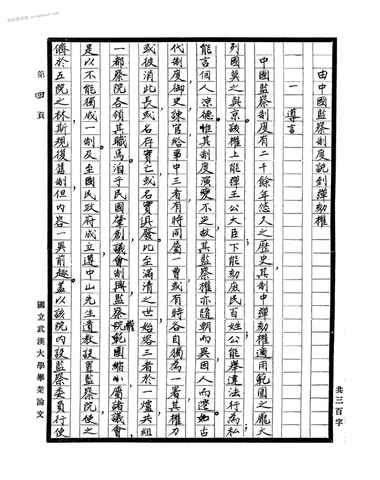 由中國監察制度說到彈劾權
一 導言
中國監察制度有二千餘年悠久之歷史其制中彈劾權適用範圍之龐大
列國莫之與京該權上能彈王公大臣下能劾庶民百姓公能舉違法行為私
能言個人涼德惟其制度演變不定故其監察權亦隨朝而異因人而遷如古
代制度御史諫官給事中三者有時同屬一曹或有時各自獨為一署其權力
或彼消此長或名存實亡或名實俱廢比至滿清之世始熔三者於一爐共組
一都察院各領其職馬泊乎民國肇創議會制興監察權範圍縮小屬諸議會
是以不能獨成一制及至國民政府成立遵中山先生遺教設置監察院使之
儕於五院之林斯規復舊制但內容一異前趣蓋以該院內設監察委員行使
第四頁
國立武漢大學畢業論文
共三百字